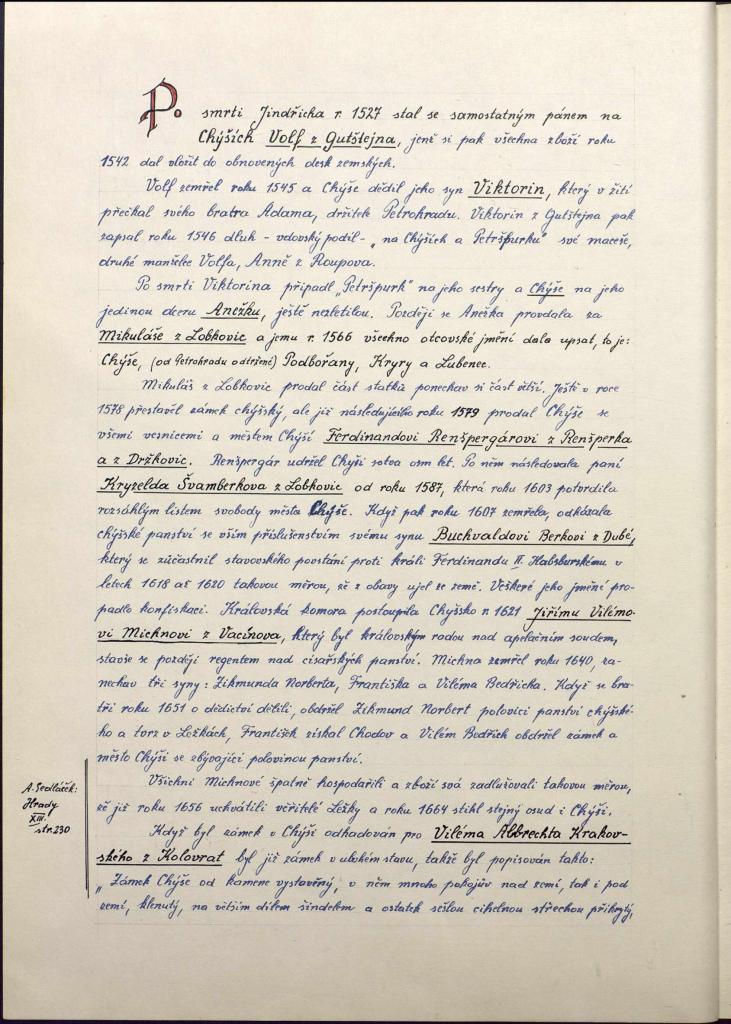 P. smrti Jindřicha r. 1527 stal se samostatným pánem na
Chýších Volf z Gutštejna, jenž si pak všechna zboží roku
1542 dal vložit do obnovených desk zemských.
Volf zemřel roku 1545 a Chýše dědil jeho syn Viktorin, který v žití
přečkal svého bratra Adama, držitele Petrohradu. Viktorin z Gutštejna pak
zapsal roku 1546 dluh - vdovský podíl - „na Chýších a Petršpurku" své maceše,
druhé manželce Volfa, Anně z Roupova.
Po smrti Viktorina připadl „Petršpurk" na jeho sestry a Chýše na jeho
jedinou dceru Anežku, ještě nezletilou. Později se Anežka provdala za
Mikuláše z Lobkovic a jemu r. 1566 všechno otcovské jmění dala upsat, to je:
Chýše, (od Petrohradu odtržené) Podbořany, Kryry a Lubenec.
Mikuláš z Lobkovic prodal část statků ponechav si část větší. Ještě v roce
1578 přestavěl zámek chýšský, ale již následujícího roku 1579 prodal Chýše se
všemi vesnicemi a městem Chýší Ferdinandovi Renšpergárovi z Renšperka
a z Držkovic. Renšpergár udržel Chýši sotva osm let. Po něm následovala paní
Kryzelda Švamberkova z Lobkovic od roku 1587, která roku 1603 potvrdila
rozsáhlým listem svobody města Chýše. Když pak roku 1607 zemřela, odkázala
chýšské panství se vším příslušenstvím svému synu Buchvaldovi Berkovi z Dubé,
který se zúčastnil stavovského povstání proti králi Ferdinandu II. Habsburskému v
letech 1618 až 1620 takovou měrou, že z obavy ujel ze země. Veškeré jeho jmění pro-
padlo konfiskaci. Královská komora postoupila Chýšsko r. 1621 Jiřímu Vilémo-
vi Michnovi z Vacínova, který byl královským radou nad apelačním soudem,
stavše se později regentem nad císařských panství. Michna zemřel roku 1640, za-
nechav tři syny: Zikmunda Norberta, Františka a Viléma Bedřicha. Když se bra-
tři roku 1651 o dědictví dělili, obdržel Zikmund Norbert polovici panství chýšské-
ho a tvrz v Ležkách, František získal Chodov a Vilém Bedřich obdržel zámek a
město Chýši se zbývající polovinou panství.
Všichni Michnové špatně hospodařili a zboží svá zadlužovali takovou měrou,
že již roku 1656 uchvátili věřitelé Ležky a roku 1664 stihl stejný osud i Chýši.
A. Sedláček:
Hrady
XIII.
str. 230
Když byl zámek v Chýši odhadován pro Viléma Albrechta Krakov-
ského z Kolovrat byl již zámek v ubohém stavu, takže byl popisován takto:
„Zámek Chýše od kamene vystavěný, v něm mnoho pokojův nad zemí, tak i pod
zemí, klenutý, na větším dílem šindelem a ostatek sešlou cihelnou střechou přikrytý,